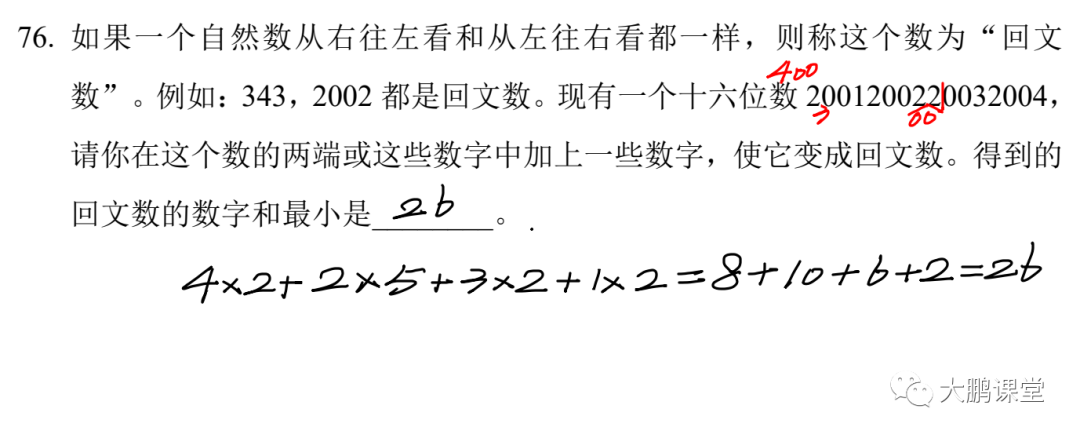 76. 如果一个自然数从右往左看和从左往右看都一样，则称这个数为“回文
400
数”。例如：343，2002 都是回文数。现有一个十六位数 2001200220032004，
3 00
请你在这个数的两端或这些数字中加上一些数字，使它变成回文数。得到的
回文数的数字和最小是 26 。.
4×2+2×5+3×2+1×2=8+10+6+2=26
大鹏课堂